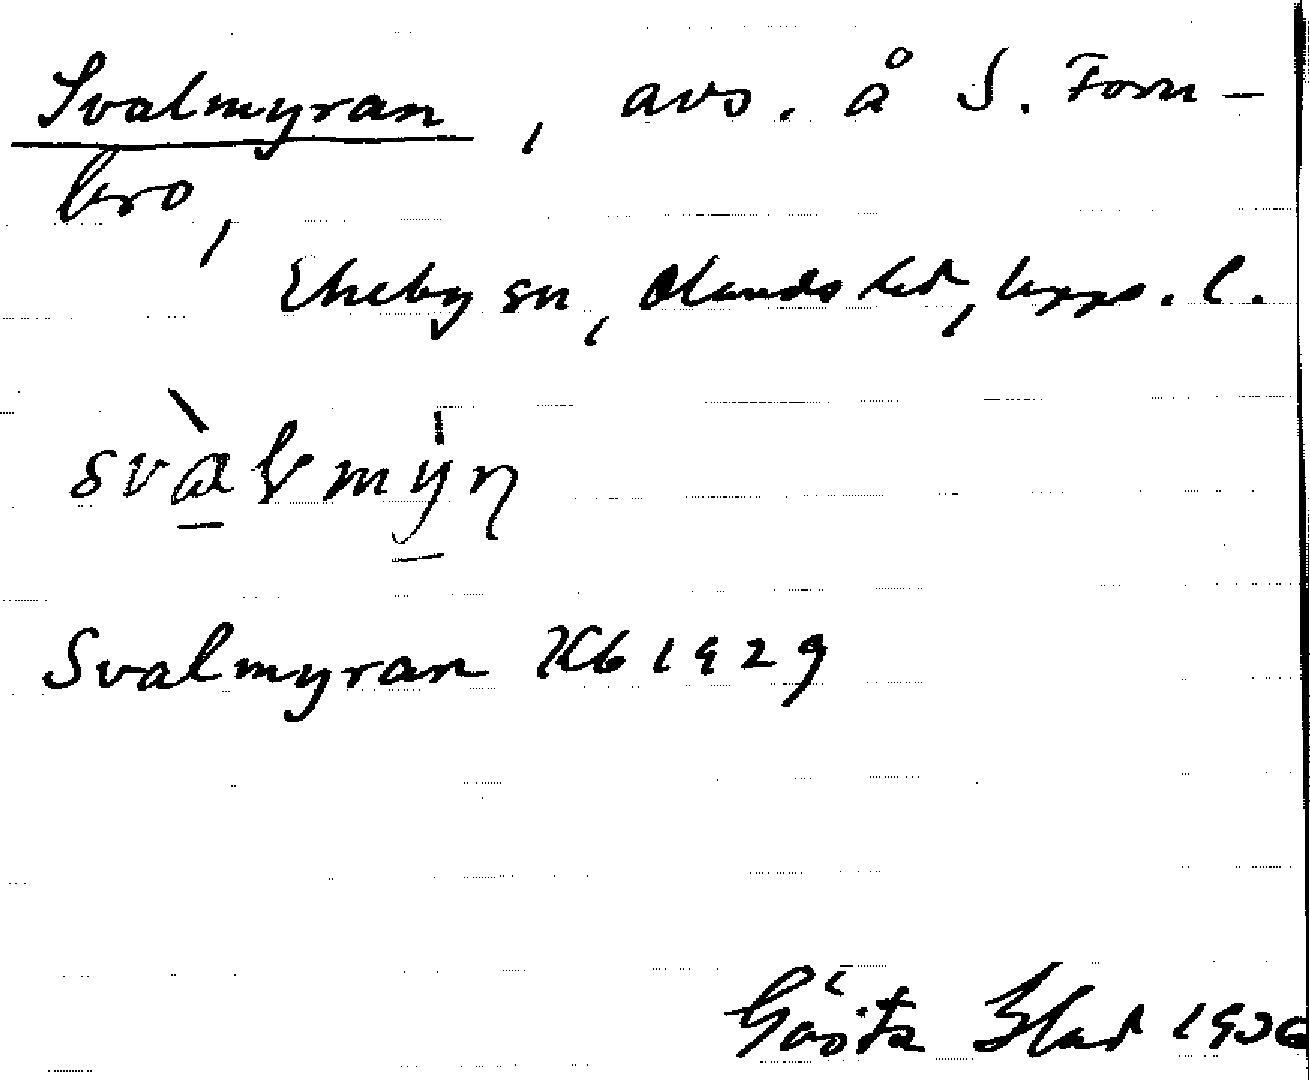 Svalmyran, avs. å S. Forn-
bro,
Ekeby sn, Olands hd, Upps. l.
svàlmyn
Svalmyran Kb 1929
Gösta Blad 1936